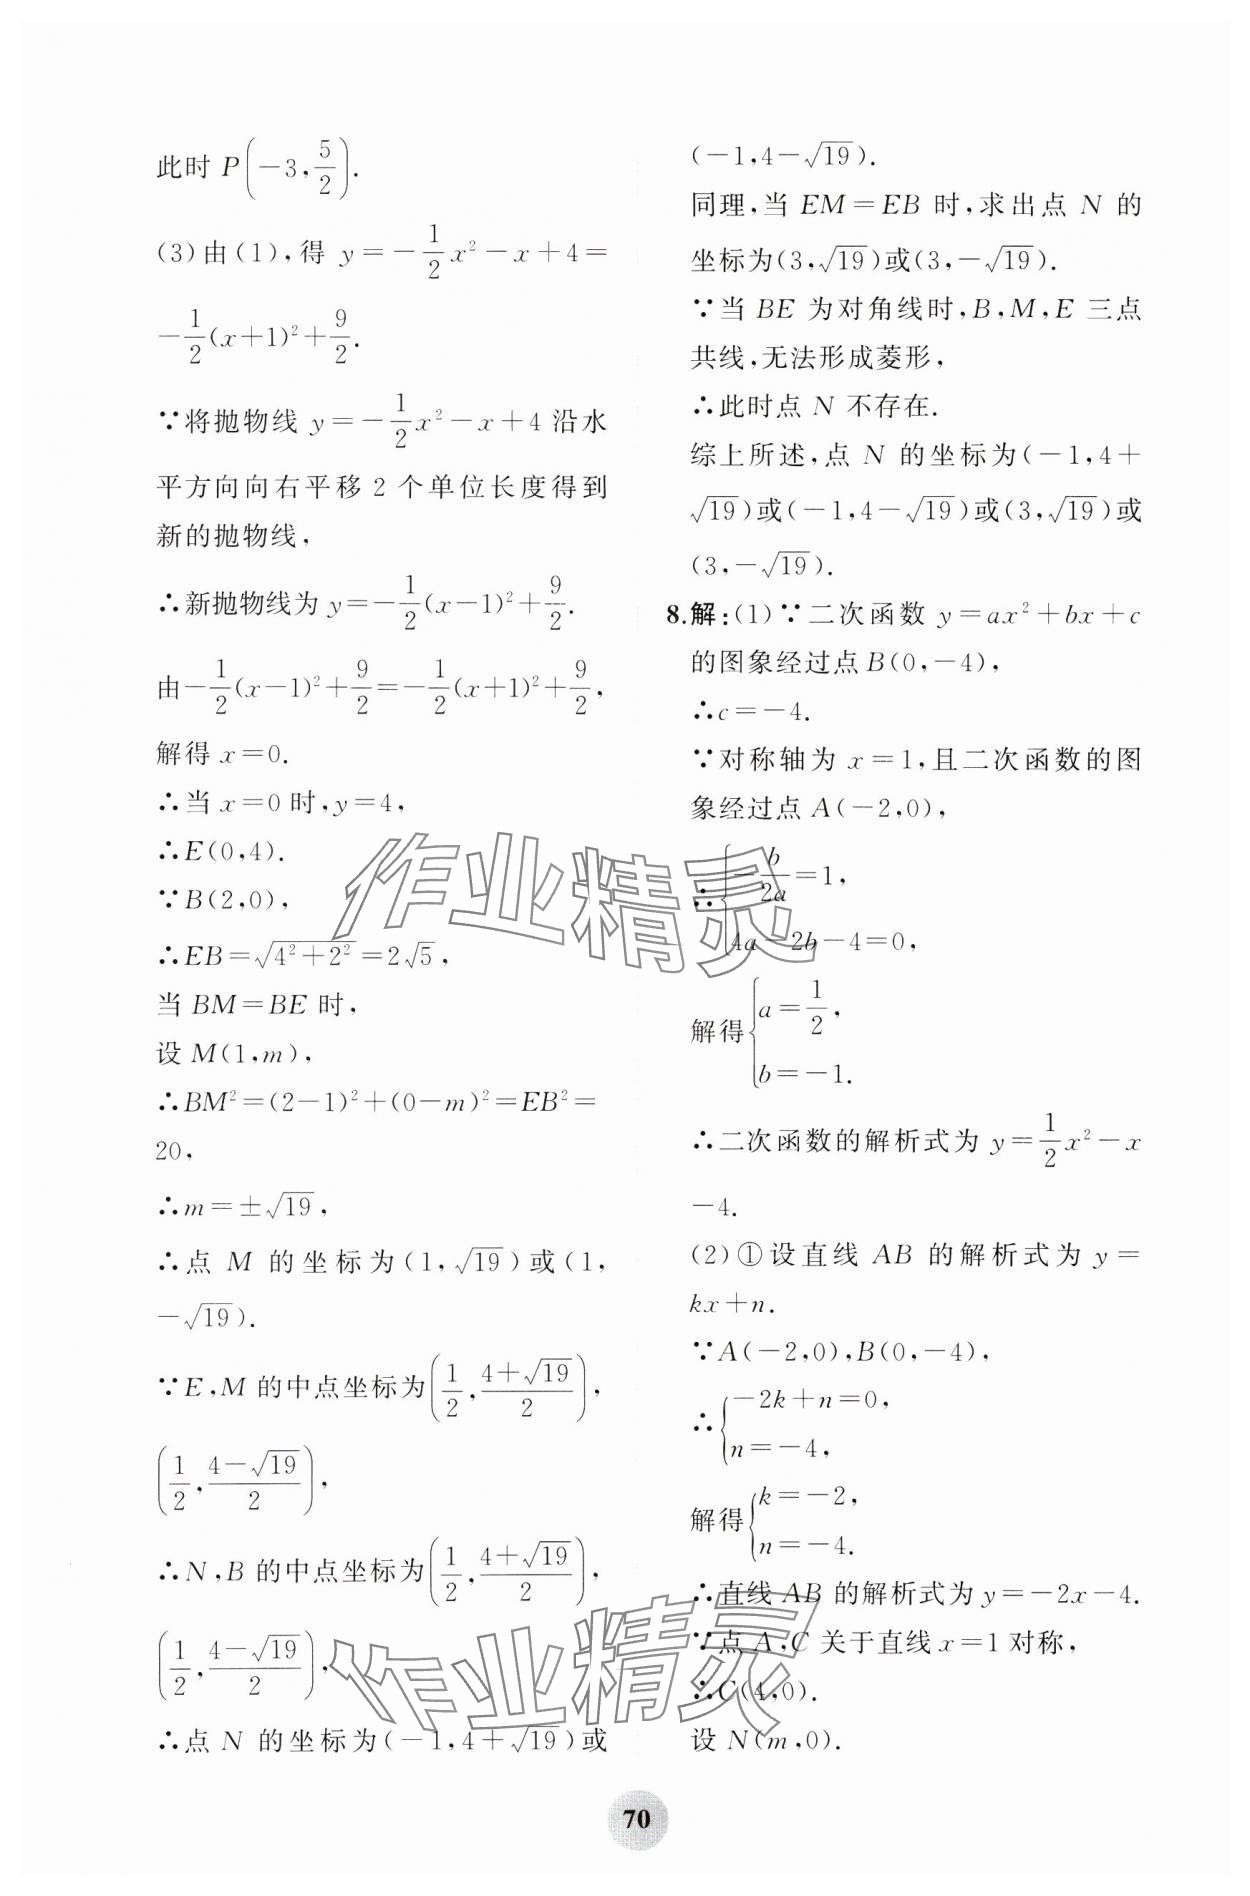 此时 P(-3,5/2).
(3)由(1),得 y=-1/2x²-x+4=
-1/2(x+1)²+9/2.
∵将抛物线 y=-1/2x²-x+4 沿水
平方向向右平移 2 个单位长度得到
新的抛物线,
∴新抛物线为 y=-1/2(x-1)²+9/2.
由-1/2(x-1)²+9/2=-1/2(x+1)²+9/2,
解得 x=0.
∴当 x=0 时,y=4,
∴E(0,4).
∵B(2,0),
∴EB=√(4²+2²)=2√5,
当 BM=BE 时,
设 M(1,m),
∴BM²=(2-1)²+(0-m)²=EB²=
20,
∴m=±√19,
∴点 M 的坐标为(1,√19)或(1,
-√19).
∵E,M 的中点坐标为(1/2,(4+√19)/2),
(1/2,(4-√19)/2),
∴N,B 的中点坐标为(1/2,(4+√19)/2),
(1/2,(4-√19)/2),
∴点 N 的坐标为(-1,4+√19)或
(-1,4-√19).
同理,当 EM=EB 时,求出点 N 的
坐标为(3,√19)或(3,-√19).
∵当 BE 为对角线时,B,M,E 三点
共线,无法形成菱形,
∴此时点 N 不存在.
综上所述,点 N 的坐标为(-1,4+
√19)或(-1,4-√19)或(3,√19)或
(3,-√19).
8.解:(1)∵二次函数 y=ax²+bx+c
的图象经过点 B(0,-4),
∴c=-4.
∵对称轴为 x=1,且二次函数的图
象经过点 A(-2,0),
∴{-b/2a=1,
4a-2b-4=0,
解得{a=1/2,
b=-1.
∴二次函数的解析式为 y=1/2x²-x
-4.
(2)①设直线 AB 的解析式为 y=
kx+n.
∵A(-2,0),B(0,-4),
∴{-2k+n=0,
n=-4,
解得{k=-2,
n=-4.
∴直线 AB 的解析式为 y=-2x-4.
∵点 A,C 关于直线 x=1 对称,
∴C(4,0).
设 N(m,0).
作业精灵
作业精灵
70